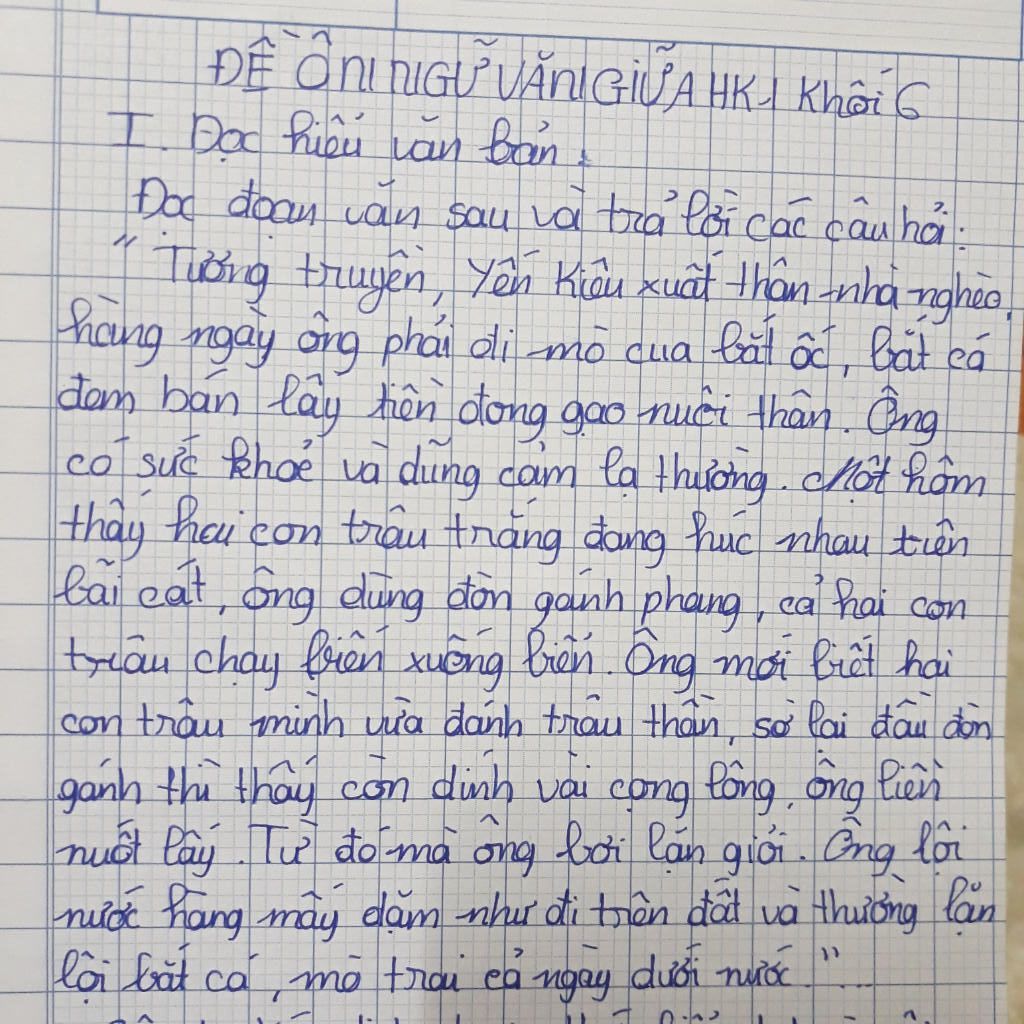 ĐỀ ÔN NGỮ VĂN GIỮA HK I Khối 6
I. Đọc hiểu văn bản.
Đọc đoạn văn sau và trả lời các câu hỏi:
" Tương truyền, Yến Kiêu xuất thân nhà nghèo,
hàng ngày ông phải đi mò cua bắt ốc, bắt cá
đem bán lấy tiền đong gạo nuôi thân. Ông
có sức khoẻ và dũng cảm lạ thường. Một hôm
thấy hai con trâu trắng đang húc nhau trên
bãi cát, ông dùng đòn gánh phang, cả hai con
trâu chạy biến xuống biển. Ông mới biết hai
con trâu mình vừa đánh trâu thần, sờ lại đầu đòn
gánh thì thấy còn dính vài cọng lông, ông liền
nuốt lấy. Từ đó mà ông bơi lặn giỏi. Ông lội
nước hàng mấy dặm như đi trên đất và thường lặn
lội bắt cá, mò trai cả ngày dưới nước "...